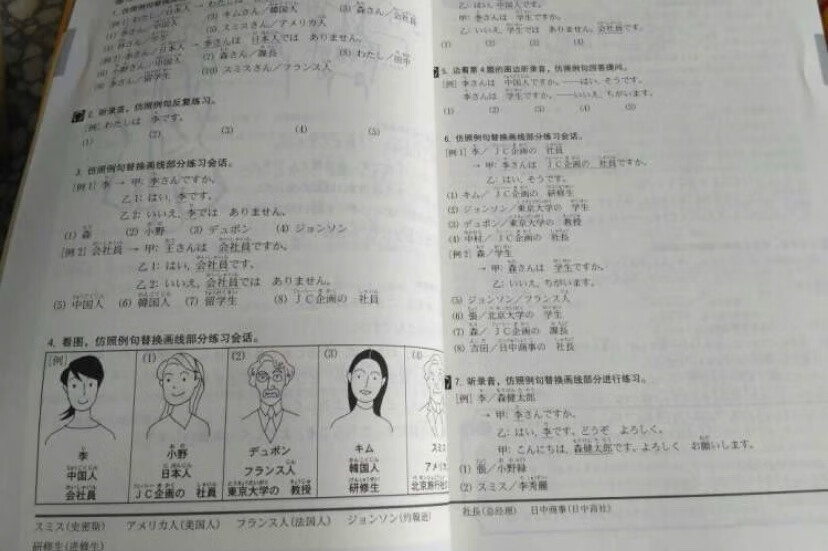 [例1] わたし/日本人 → わたし
(3) キムさん/韓国人
(5) スミスさん/アメリカ人
[例2] 李さん/日本人 → 李さんは 日本人では ありません。
(7) 森さん/課長
(8) わたし/
(9) 李さん/留学生
(10) スミスさん/フランス人
2. 听录音,仿照例句反复练习。
[例] わたしは 李です。
(1) (2) (3) (4) (5)
3. 仿照例句替换画线部分练习会话。
[例1] 李 → 甲: 李さんですか。
乙1: はい, 李です。
乙2: いいえ, 李では ありません。
(1) 森 (2) 小野 (3) デュポン (4) ジョンソン
[例2] 会社員 → 甲: 王さんは 会社員ですか。
乙1: はい, 会社員です。
乙2: いいえ, 会社員では ありません。
(5) 中国人 (6) 韓国人 (7) 留学生 (8) JC企画の 社員
4. 看图,仿照例句替换画线部分练习会话。
[例] (1) (2) (3) (4)
李
中国人
会社員
小野
日本人
JC企画の 社員
デュポン
フランス人
東京大学の 教授
キム
韓国人
研修生
スミ
アメリ
スミス(史密斯) アメリカ人(美国人) フランス人(法国人) ジョンソン(约翰逊)
研修生(进修生)
乙: はい, 中国人です。
甲: 李さんは 学生ですか。
乙: いいえ, 学生では ありません, 会社員です。
(1) (2) (3) (4)
5. 边看第4题的图边听录音,仿照例句回答提问。
[例] 李さんは 中国人ですか。——はい, そうです。
李さんは 学生ですか。——いいえ, ちがいます。
(1) (2) (3) (4) (5)
6. 仿照例句替换画线部分练习会话。
[例1] 李/JC企画の 社員
→ 甲: 李さんは JC企画の 社員ですか。
乙: はい, そうです。
(1) キム/JC企画の 研修生
(2) ジョンソン/東京大学の 学生
(3) デュポン/東京大学の 教授
(4) 中村/JC企画の 社長
[例2] 森/学生
→ 甲: 森さんは 学生ですか。
乙: いいえ, ちがいます。
(5) ジョンソン/フランス人
(6) 張/北京大学の 学生
(7) 森/JC企画の 課長
(8) 吉田/日中商事の 社長
7. 听录音,仿照例句替换画线部分进行练习。
[例] 李/森健太郎
→ 甲: 李さんですか。
乙: はい, 李です。どうぞ よろしく。
甲: こんにちは, 森健太郎です。よろしく お願いします。
(1) 張/小野緑
(2) スミス/李秀麗
社長(总经理) 日中商事(日中商社)